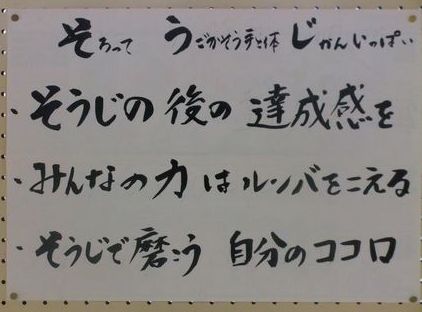 そろって うごかそう手と体 じかんいっぱい
・そうじの後の達成感を
・みんなの力はルンバをこえる
・そうじで磨こう 自分のココロ